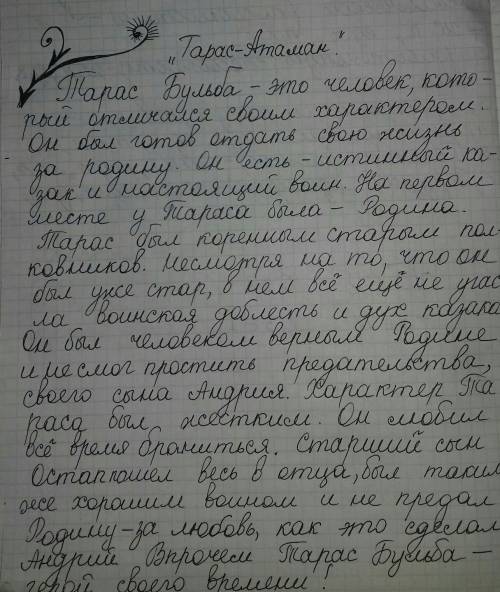 „Тарас-Атаман".
Тарас Бульба – это человек, кото-
рый отличался своим характером.
Он был готов отдать свою жизнь
за родину. Он есть – истинный ка-
зак и настоящий воин. На первом
месте у Тараса была – Родина.
Тарас был коренным старым пол-
ковников. Несмотря на то, что он
был уже стар, в нем всё ещё не угас
ла воинская доблесть и дух казака
Он был человеком верным Родине
и не смог простить предательства,
своего сына Андрия. Характер Та
раса был жестким. Он любил
всё время браниться. Старший сын
Остап пошел весь в отца, был таким
же хорошим воином и не предал
Родину – за любовь, как это сделал
Андрий Впрочем Тарас Бульба –
герой своего времени!